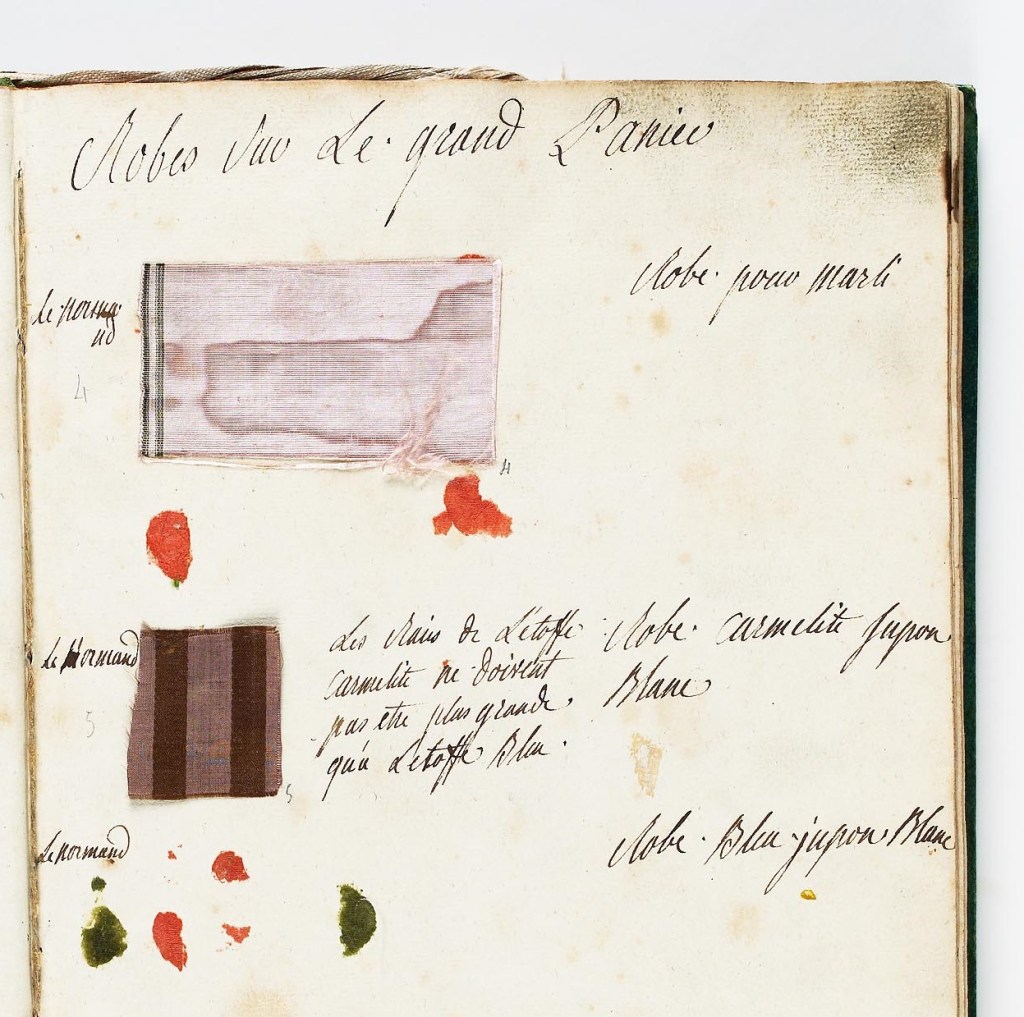 Robes sur Le grand Panier
Robe pour marli
Le norma
nd
4
4
Le Normand
Les Rais de L'étoffe
carmelite ne doivent
pas etre plus grande
qu'a Létoffe Bleu.
Robe carmelite jupon
Blanc
5
5
Le normand
Robe Bleu jupon Blanc